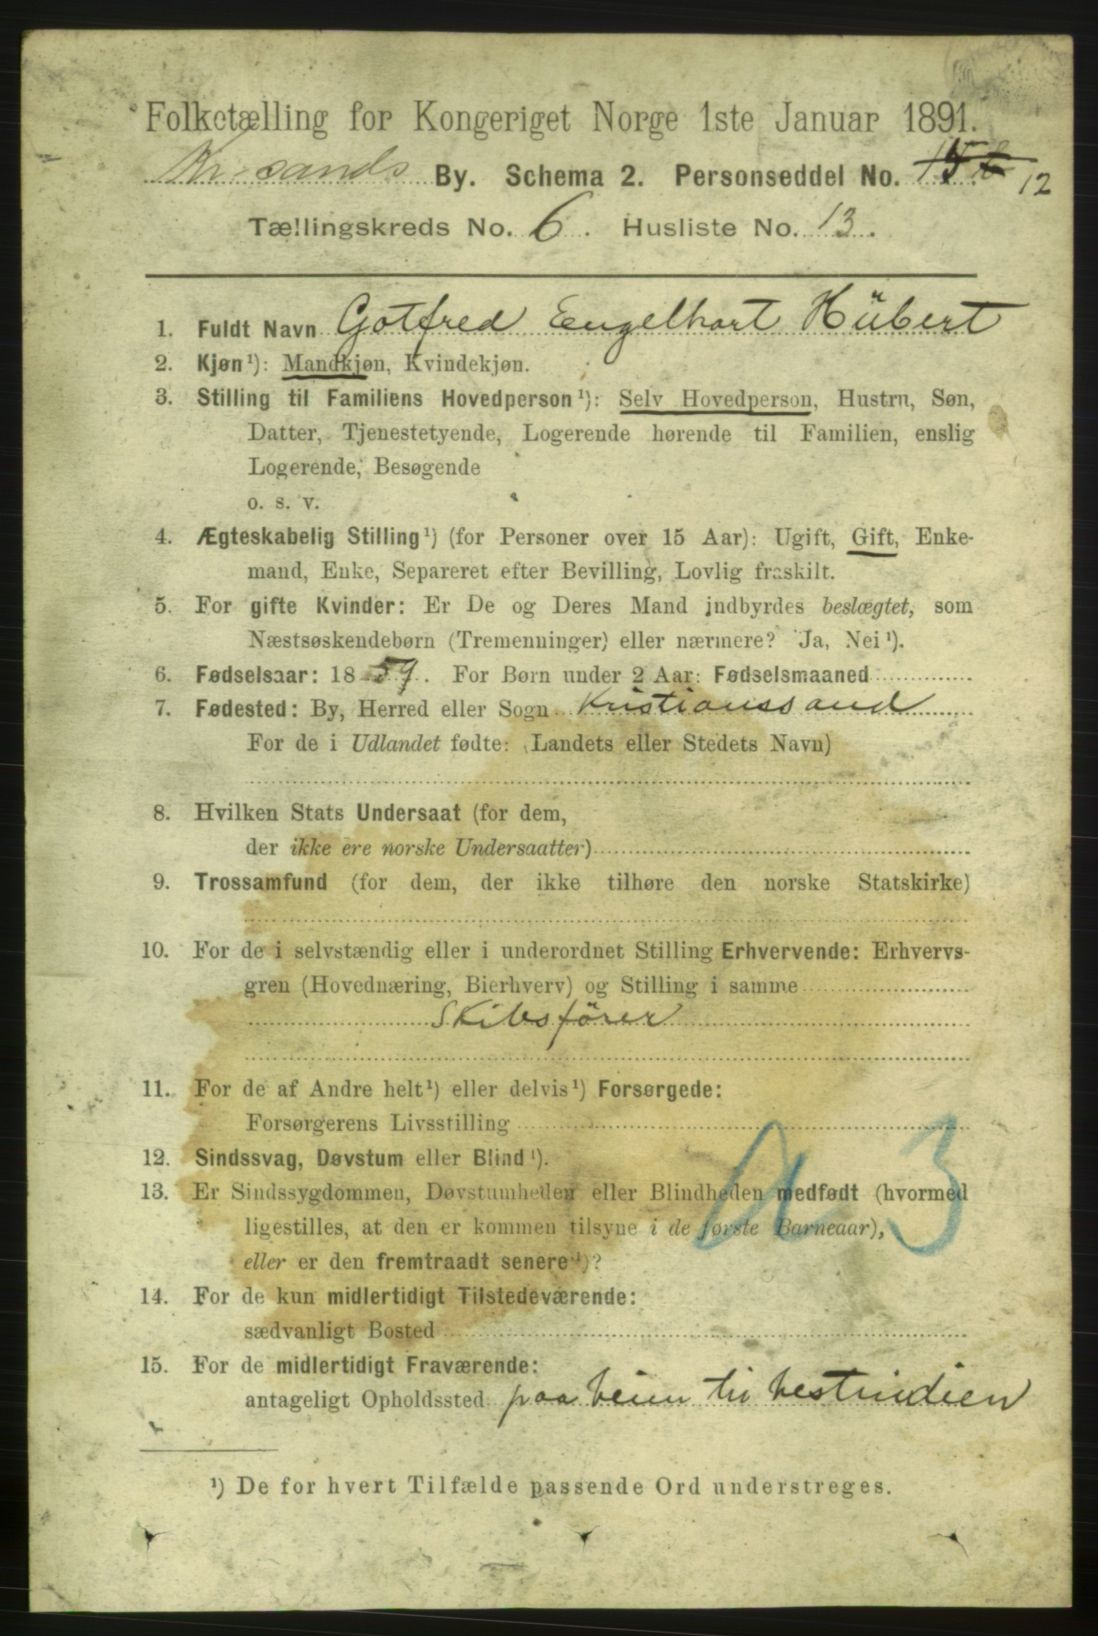 Folketælling for Kongeriget Norge 1ste Januar 1891.
Kr.sands By. Schema 2. Personseddel No. 12
Tællingskreds No. 6. Husliste No. 13.
1. Fuldt Navn Gotfred Engelhart Hübert
2. Kjøn¹): Mandkjøn, Kvindekjøn.
3. Stilling til Familiens Hovedperson¹): Selv Hovedperson, Hustru, Søn,
Datter, Tjenestetyende, Logerende hørende til Familien, enslig
Logerende, Besøgende
o. s. v.
4. Ægteskabelig Stilling¹) (for Personer over 15 Aar): Ugift, Gift, Enke-
mand, Enke, Separeret efter Bevilling, Lovlig fraskilt.
5. For gifte Kvinder: Er De og Deres Mand indbyrdes beslægtet, som
Næstsøskendebørn (Tremenninger) eller nærmere? Ja, Nei¹).
6. Fødselsaar: 1859. For Børn under 2 Aar: Fødselsmaaned
7. Fødested: By, Herred eller Sogn Kristianssand
For de i Udlandet fødte: (Landets eller Stedets Navn)
8. Hvilken Stats Undersaat (for dem,
der ikke ere norske Undersaatter)
9. Trossamfund (for dem, der ikke tilhøre den norske Statskirke)
10. For de i selvstændig eller i underordnet Stilling Erhvervende: Erhvervs-
gren (Hovednæring, Bierhverv) og Stilling i samme
Skibsfører
11. For de af Andre helt¹) eller delvis¹) Forsørgede:
Forsørgerens Livsstilling
12. Sindssvag, Døvstum eller Blind¹).
13. Er Sindssygdommen, Døvstumheden eller Blindheden medfødt (hvormed
ligestilles, at den er kommen tilsyne i de første Barneaar),
eller er den fremtraadt senere¹)?
a 3
14. For de kun midlertidigt Tilstedeværende:
sædvanligt Bosted
15. For de midlertidigt Fraværende:
antageligt Opholdssted paa veien til Vestindien
¹) De for hvert Tilfælde passende Ord understreges.